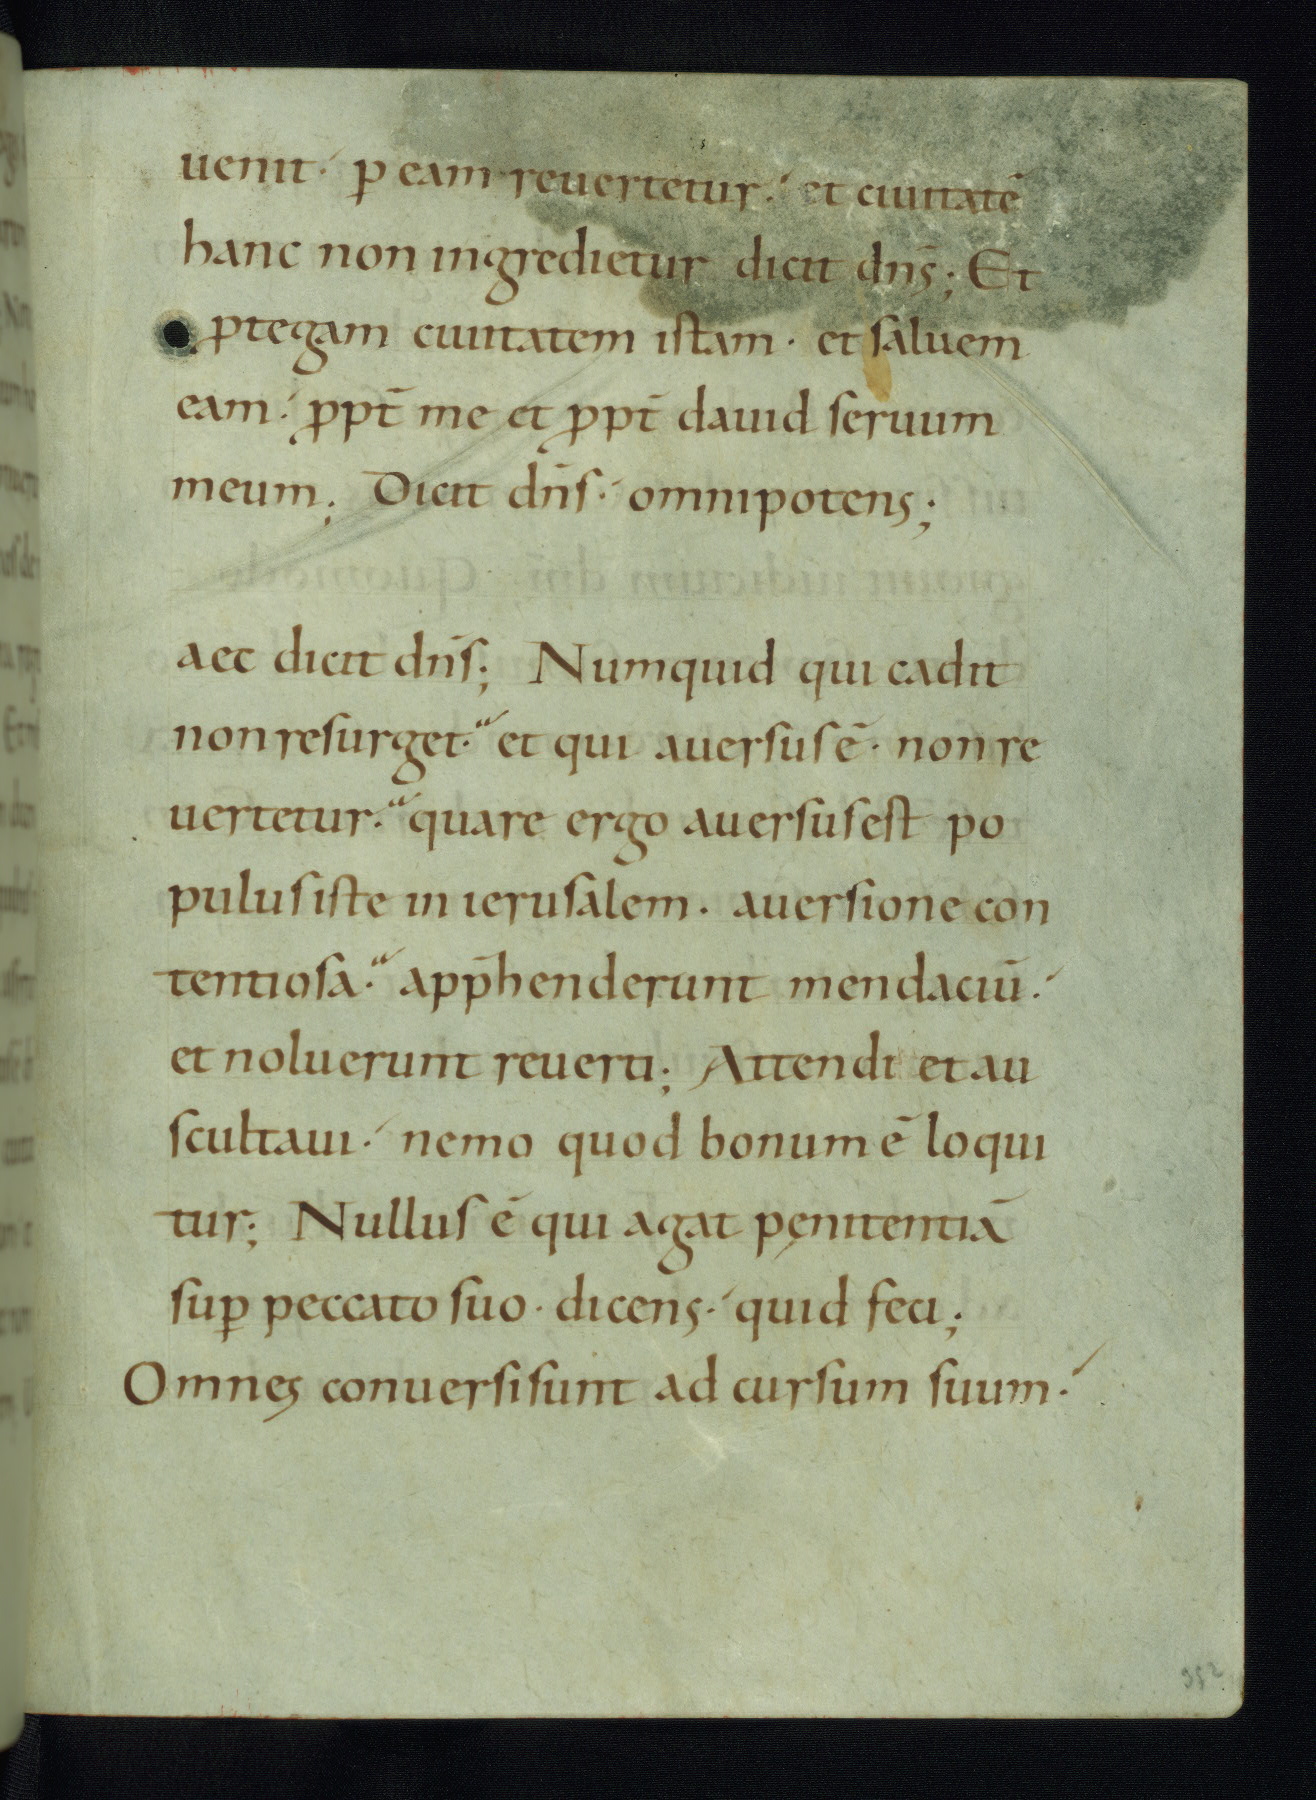 uenit· ꝑ eam reuertetur· et ciuitatē
hanc non ingredietur dicit dn̄s; Et
ꝓtegam ciuitatem istam· et saluem
eam· ꝓpt̄ me et ꝓpt̄ dauid seruum
meum; Dicit dn̄s· omnipotens;
aec dicit dn̄s; Numquid qui cadit
non resurget· et qui auersus ē· non re
uertetur· quare ergo auersus est po
pulus iste in ierusalem· auersione con
tentiosa· app̄henderunt mendaciū·
et noluerunt reuerti; Attendi et au
scultaui· nemo quod bonum ē loqui
tur; Nullus ē qui agat pęnitentiā
suꝑ peccato suo· dicens· quid feci;
Omnes conuersi sunt ad cursum suum·